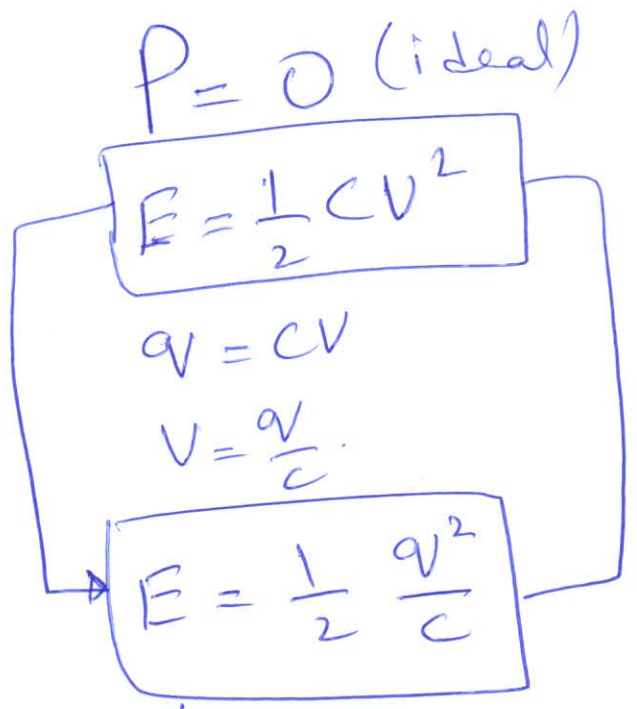 P = 0 (ideal)
E = 1/2 CV²
q = CV
V = q/C.
E = 1/2 q²/C